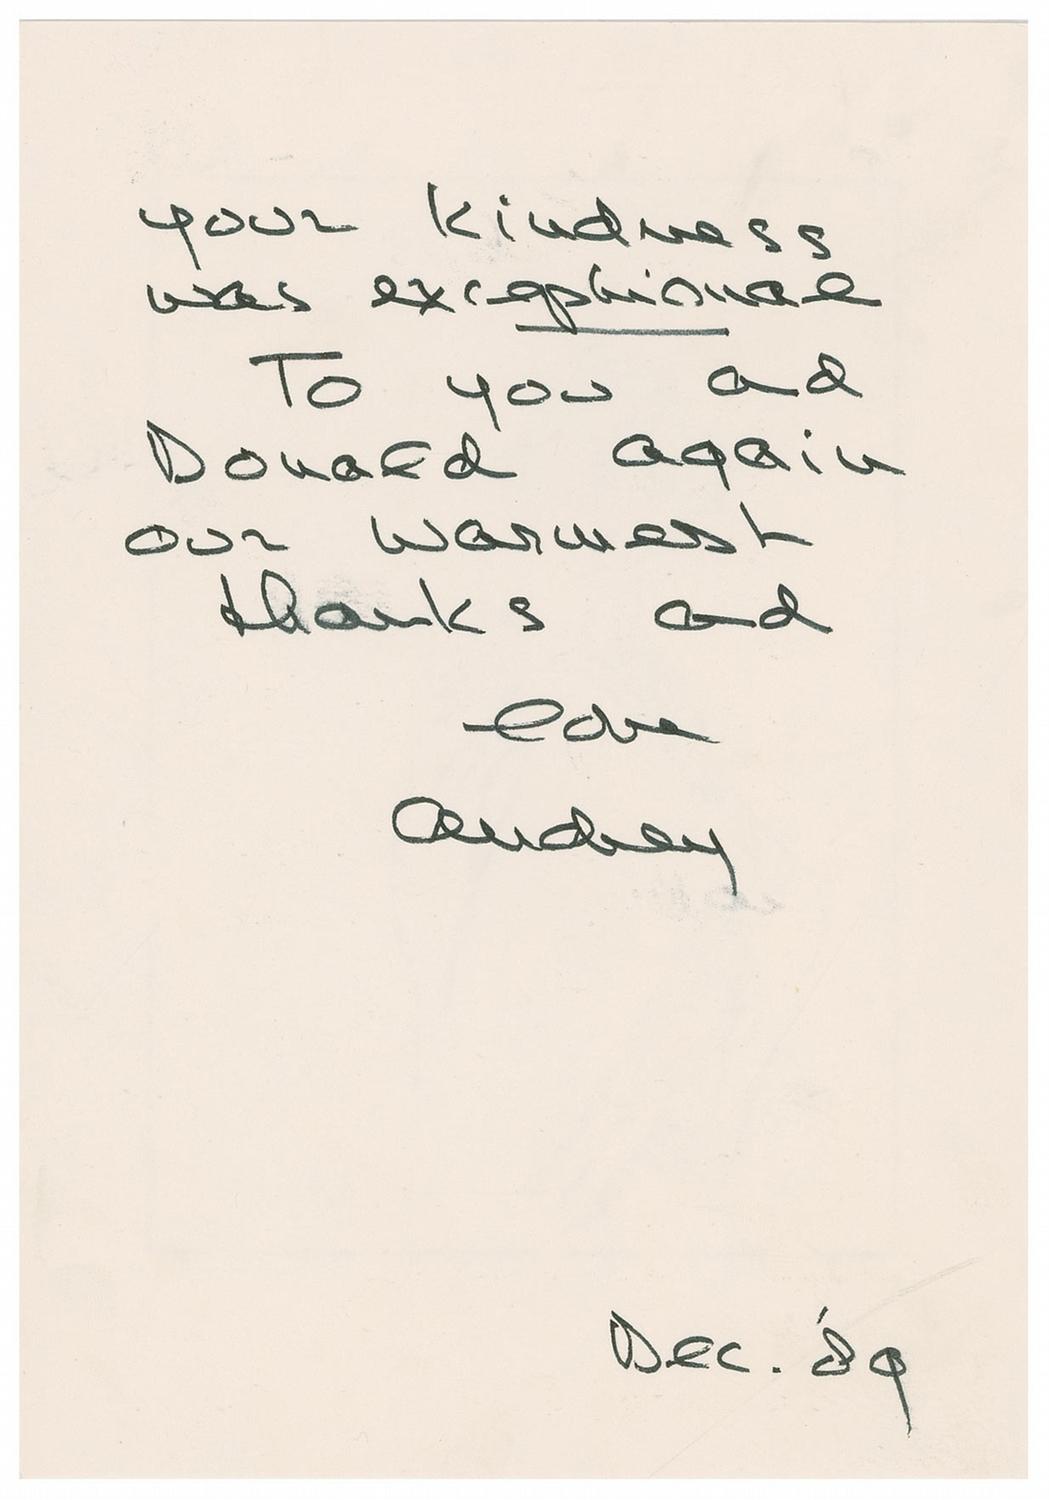 your kindness
was exceptional
To you and
Donald again
our warmest
thanks and
love
Audrey
Dec. '89